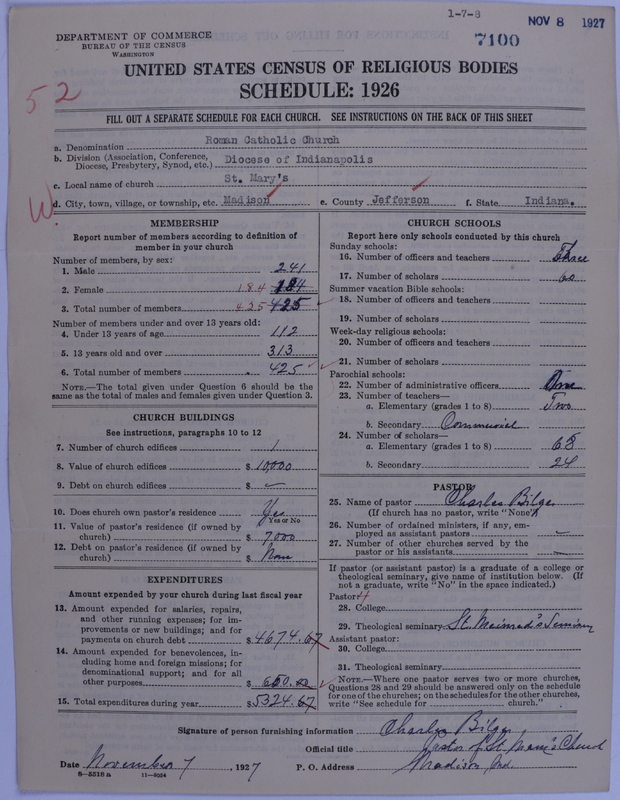 1-7-8
NOV 8 1927
7100
DEPARTMENT OF COMMERCE
BUREAU OF THE CENSUS
WASHINGTON
UNITED STATES CENSUS OF RELIGIOUS BODIES
SCHEDULE: 1926
52
FILL OUT A SEPARATE SCHEDULE FOR EACH CHURCH. SEE INSTRUCTIONS ON THE BACK OF THIS SHEET
a. Denomination Roman Catholic Church
b. Division (Association, Conference, Diocese, Presbytery, Synod, etc.) Diocese of Indianapolis
c. Local name of church St. Mary's
d. City, town, village, or township, etc. Madison e. County Jefferson f. State Indiana.
W.
MEMBERSHIP
Report number of members according to definition of
member in your church
Number of members, by sex:
1. Male 241
2. Female 184 184
3. Total number of members 425 425
Number of members under and over 13 years old:
4. Under 13 years of age 112
5. 13 years old and over 313
6. Total number of members 425
NOTE.—The total given under Question 6 should be the
same as the total of males and females given under Question 3.
CHURCH BUILDINGS
See instructions, paragraphs 10 to 12
7. Number of church edifices 1
8. Value of church edifices $ 10,000
9. Debt on church edifices $ —
10. Does church own pastor's residence Yes
Yes or No
11. Value of pastor's residence (if owned by
church) $ 7,000
12. Debt on pastor's residence (if owned by
church) $ None
EXPENDITURES
Amount expended by your church during last fiscal year
13. Amount expended for salaries, repairs,
and other running expenses; for im-
provements or new buildings; and for
payments on church debt $ 4674.67
14. Amount expended for benevolences, in-
cluding home and foreign missions; for
denominational support; and for all
other purposes $ 650.00
15. Total expenditures during year $ 5324.67
CHURCH SCHOOLS
Report here only schools conducted by this church
Sunday schools:
16. Number of officers and teachers Three
17. Number of scholars 60
Summer vacation Bible schools:
18. Number of officers and teachers
19. Number of scholars
Week-day religious schools:
20. Number of officers and teachers
21. Number of scholars
Parochial schools:
22. Number of administrative officers One
23. Number of teachers—
a. Elementary (grades 1 to 8) Two
b. Secondary Commercial
24. Number of scholars—
a. Elementary (grades 1 to 8) 68
b. Secondary 24
PASTOR
25. Name of pastor Charles Bilger
(If church has no pastor, write "None")
26. Number of ordained ministers, if any, em-
ployed as assistant pastors —
27. Number of other churches served by the
pastor or his assistants —
If pastor (or assistant pastor) is a graduate of a college or
theological seminary, give name of institution below. (If
not a graduate, write "No" in the space indicated.)
Pastor:
28. College
29. Theological seminary St. Meinrad's Seminary
Assistant pastor:
30. College
31. Theological seminary
NOTE.—Where one pastor serves two or more churches,
Questions 28 and 29 should be answered only on the schedule
for one of the churches; on the schedules for the other churches,
write "See schedule for church."
Signature of person furnishing information Charles Bilger
Official title Pastor of St. Mary's Church
Date November 7, 1927 P. O. Address Madison Ind.
8-5518a 11-9024